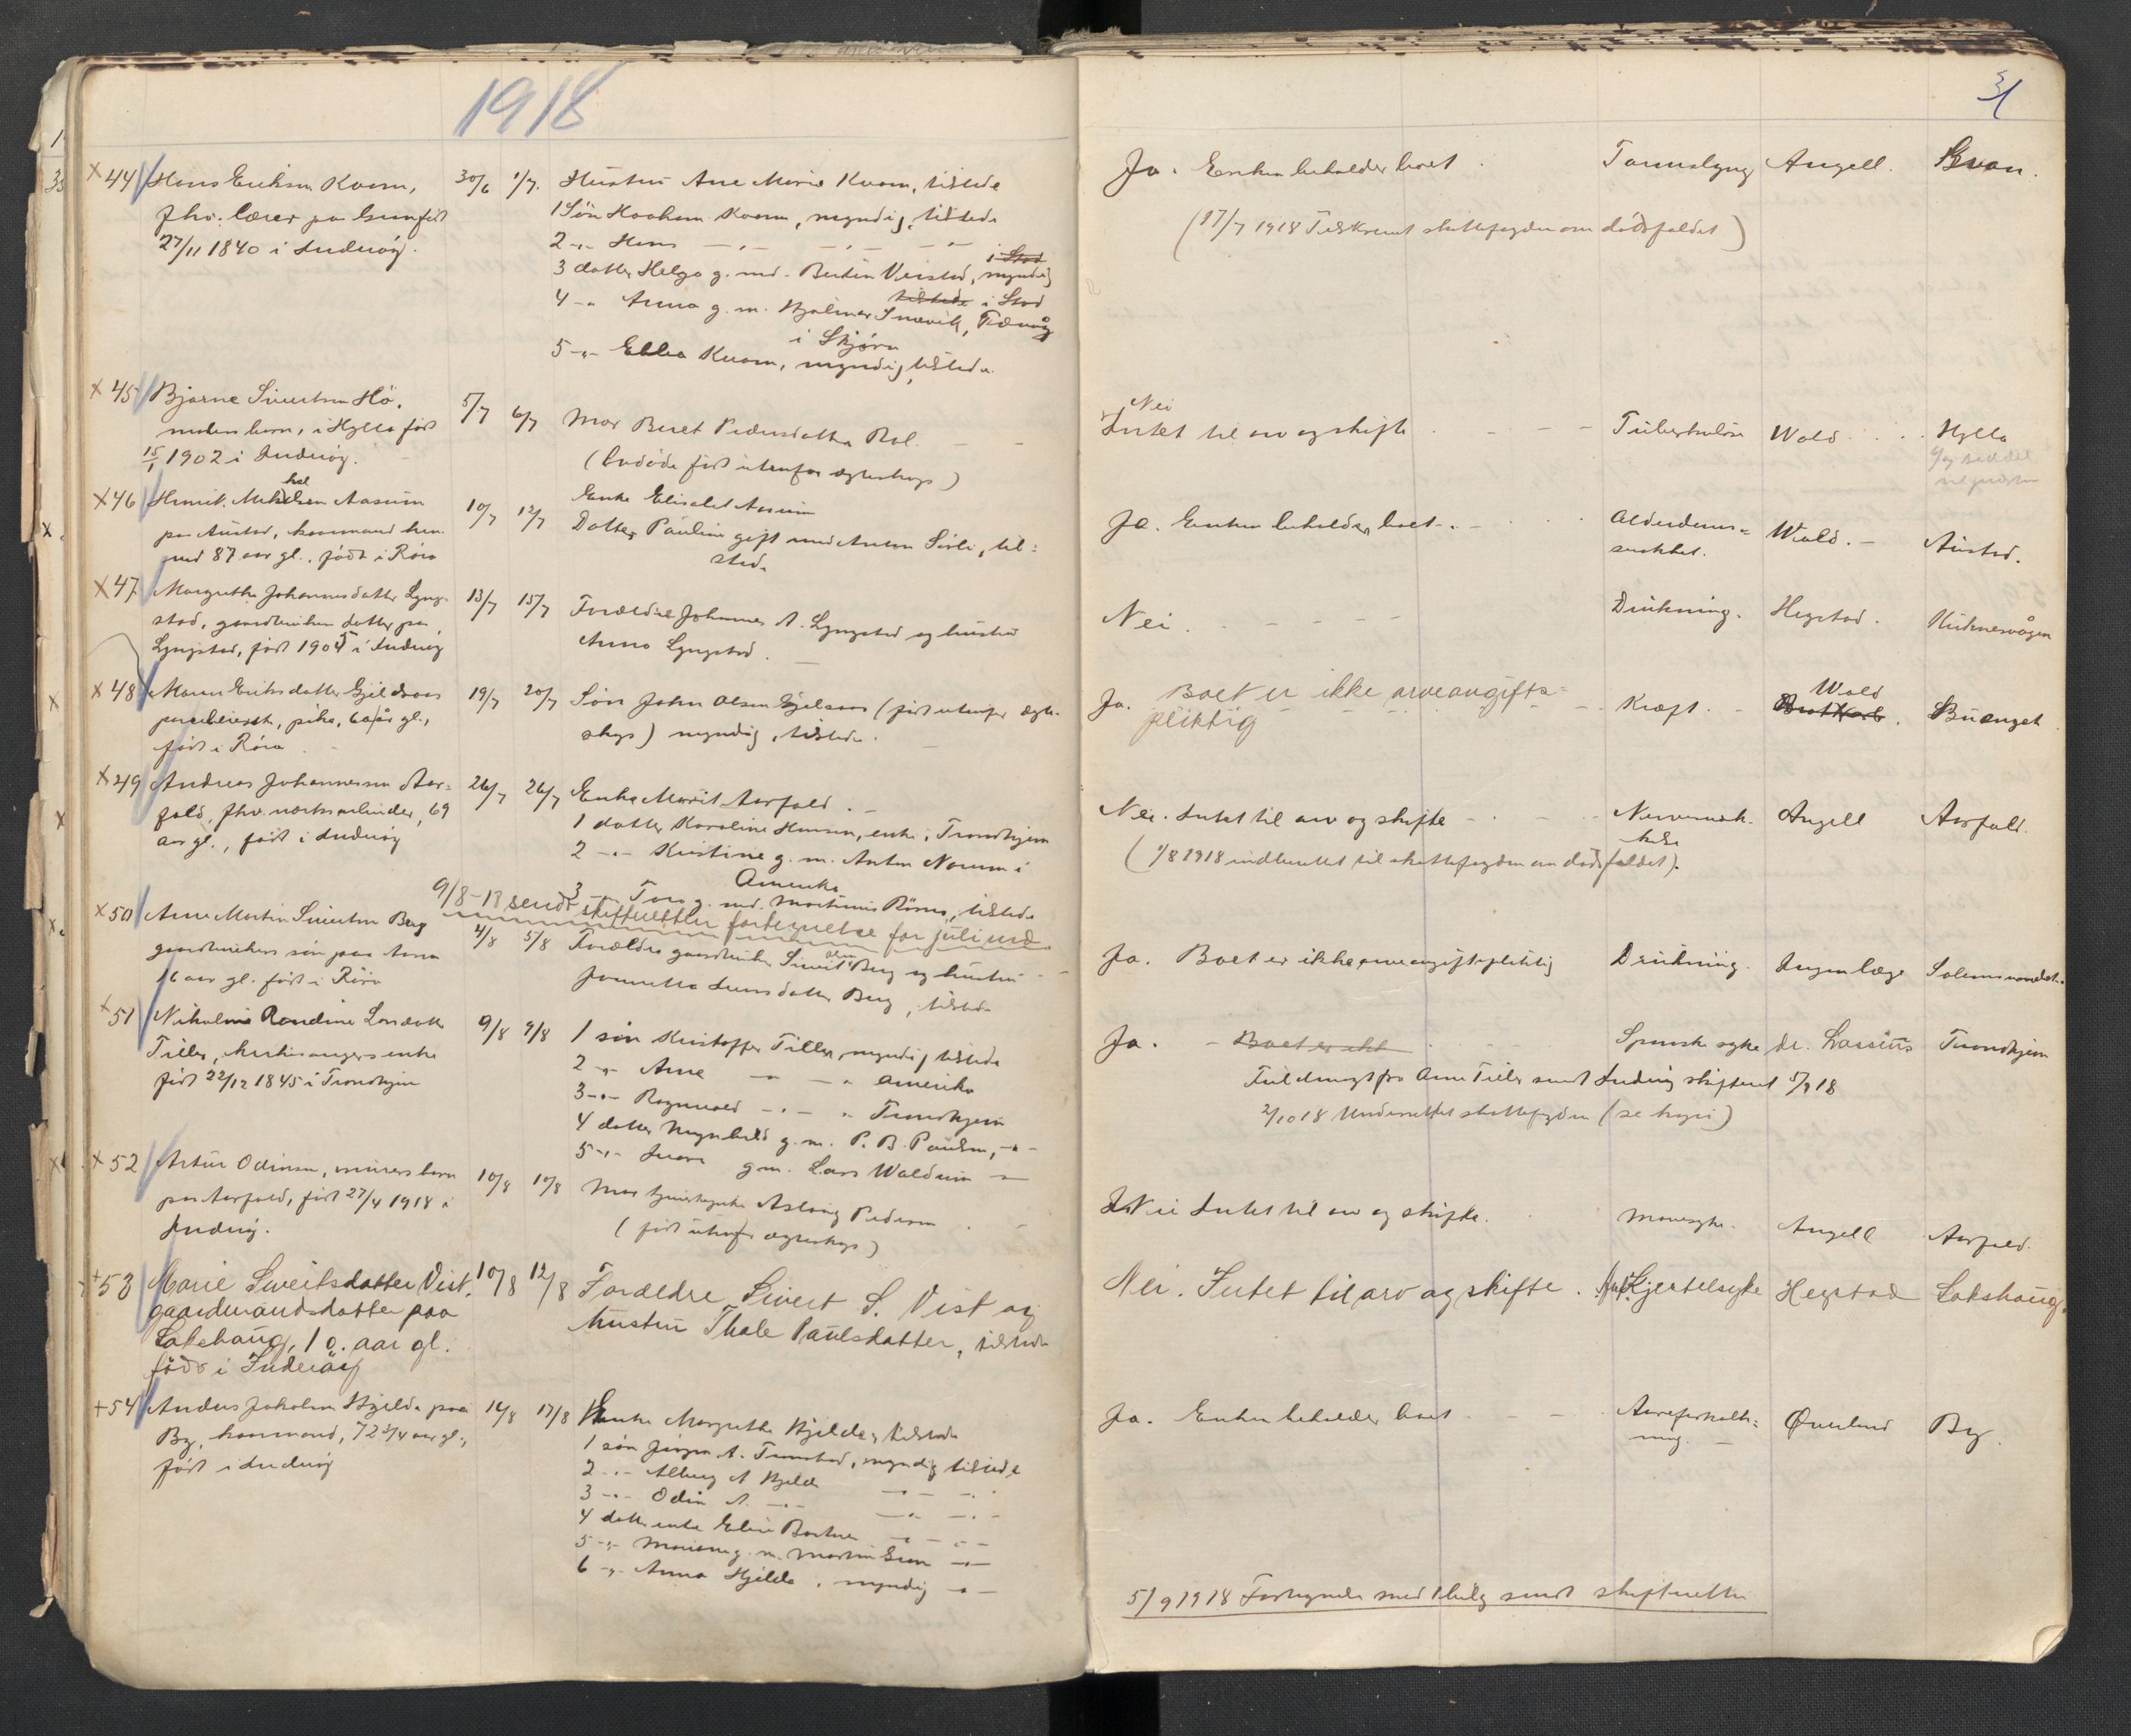 1918
31
x 44 Hans Eriksen Kvam,
fhv. lærer paa Grun født
27/11 1840 i Inderøy.
30/6 1/7. Hustru Ane Marie Kvam, tilstede
1 Søn Haakon Kvam, myndig, tilstede
2 -"- Hans -"- -"- -"-
i Stod
3 datter Helga g. med. Bertin Verstad, myndig
tilstede i Stod
4 -" Anna g. m. Hjalmar Snevik,
i Skjørn
5 -"- Ebba Kvam, myndig, tilstede
Ja. Enken beholder boet. Angell.
(17/7 1918 Tilskrevet skattefogden om dødsfaldet)
x 45 Bjarne Sivertsen Hö,
barn, i Hylla født
15/1 1902 i Inderøy.
5/7 6/7 Mor Beret Pedersdatter Rol.
(Avdøde født utenfor ægteskap)
Nei
Intet til arv og skifte Tuberkulose Wald Hylla
x 46 Henrik Mikkelsen Aasum
paa Austad, kaarmand
87 aar gl., født i Röra
10/7 12/7 Enke Elisabet Aasum
Datter Pauline gift med Anton Sörli, til=
stede
Ja. Enken beholder boet. Alderdoms=
svakhet. Wald. Austad.
x 47 Margrethe Johannesdatter Lyng-
stad, gaardbruker datter paa
Lyngstad, født 1905 i Inderøy
13/7 15/7 Forældre Johannes A. Lyngstad og hustru
Anna Lyngstad.
Nei Drukning. Hegstad.
x 48 Maren Eriksdatter Gjeldsaas
pike, 60 år gl.,
født i Röra
19/7 20/7 Søn John Olsen Gjelsaas (født utenfor ægte-
skap) myndig, tilstede.
Ja. Boet er ikke arveavgifts=
pliktig Kræft. Wald Buenget
x 49 Andreas Johannessen Aar=
fald, fhv. , 69
aar gl., født i Inderøy
26/7 26/7 Enke Marit Aarfald.
1 datter Karoline Hansen, enke, Trondhjem
2 -"- Kristine g. m. Anton Norum i
Amerika
3 -"- Tora g. med. Martinus Rösnes, tilstede
Nei. Intet til arv og skifte Angell Aarfald.
(1/8 1918 indberettet til skattefogden om dødsfaldet).
9/8-18 sendt skifteretten fortegnelse for juli md.
x 50 Arne Martin Sivertsen Berg
gaardbrukers søn paa
16 aar gl. født i Röra
4/8 5/8 Forældre gaardbruker Sivert Olsen Berg og hustru
Jonetta Larsdatter Berg, tilstede
Ja. Boet er ikke arveavgiftspliktig Drukning. Ingen læge
x 51 Nikoline Randine Larsdatter
Tiller, kirkesangers enke
født 22/12 1845 i Trondhjem
9/8 9/8 1 søn Kristoffer Tiller, myndig tilstede
2 -"- Arne -"- -" Amerika
3 -"- Ragnvald -"- " Trondhjem
4 datter Magnhild g. m. P. B. Paulsen, -"-
5 -"- g. m. Lars Waldum -"-
Ja. - Boet er ikke Spanske syke dr. Lassius Trondhjem
Fuldmagt fra Arne Tiller sendt Inderøy skifteret 5/9 18
2/10 18 Underrettet skattefogden (se kopi)
x 52 Artur Odinsen, murers barn
paa Aarfald, født 27/4 1918 i
Inderøy.
10/8 10/8 Mor tjenestepike Aslaug Pedersen
(født utenfor ægteskap)
Nei Intet til arv og skifte. Mavesyke. Angell Aarfald.
+ 53 Marie Sivertsdatter Vist,
gaardmandsdatter paa
Lakshaug, 10. aar gl.
født i Inderøy
10/8 12/8 Forældre Sivert S. Vist og
hustru Thale Paulsdatter, tilstede
Nei. Intet til arv og skifte. Kjertelsyke Hegstad Lakshaug.
+ 54 Anders Jakobsen Hjelde paa
By, kaarmand, 72 3/4 aar gl.,
født i Inderøy
14/8 17/8 Enke Margrethe Hjelde, tilstede
1 søn Jörgen A. Tunstad, myndig tilstede
2 -"- Alberg A Hjelde -"- -"-
3 -"- Odin A. -"- -"- -"-
4 datter enke Eline -"- -"-
5 -"- g. m. Martin -"-
6 -"- Anna Hjelde, myndig -"-
Ja. Enken beholder boet Aareforkalk=
ning. Överland By.
5/9 1918 Fortegnelse med 1 bilag sendt skifteretten